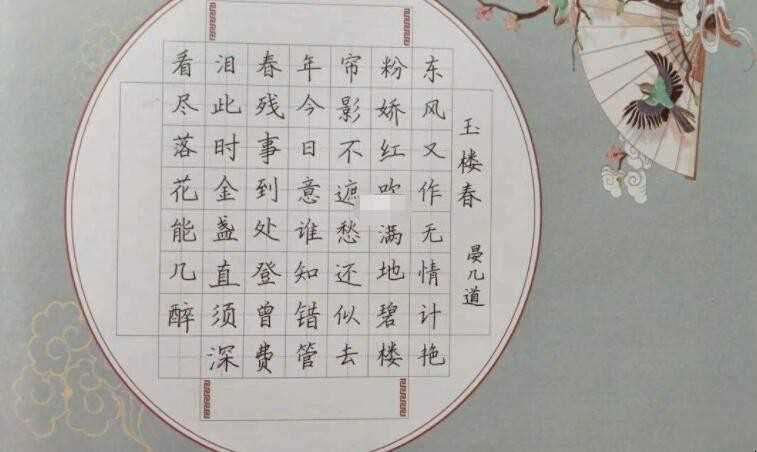 玉楼春
晏几道
东风又作无情计艳
粉娇红吹满地碧楼
帘影不遮愁还似去
年今日意谁知错管
春残事到处登曾费
泪此时金盏直须深
看尽落花能几醉